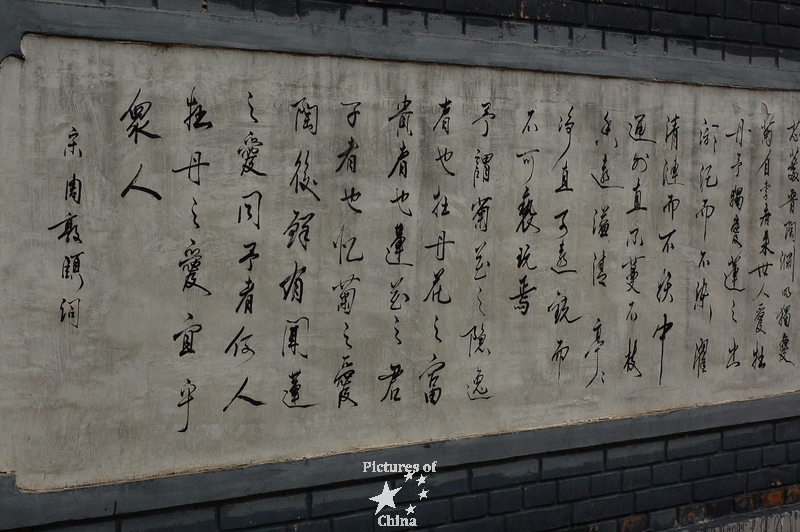 甚蕃晋陶渊明獨愛
菊自李唐来世人愛牡
丹予獨愛蓮之出
淤泥而不染濯
清漣而不妖中
通外直不蔓不枝
香遠溢清亭亭
净直可遠觀而
不可褻玩焉
予謂菊花之隐逸
者也牡丹花之富
貴者也蓮花之君
子者也噫菊之愛
陶後鲜有聞蓮
之愛同予者何人
牡丹之愛宜乎
衆人
宋周敦頤詞
Pictures of
China